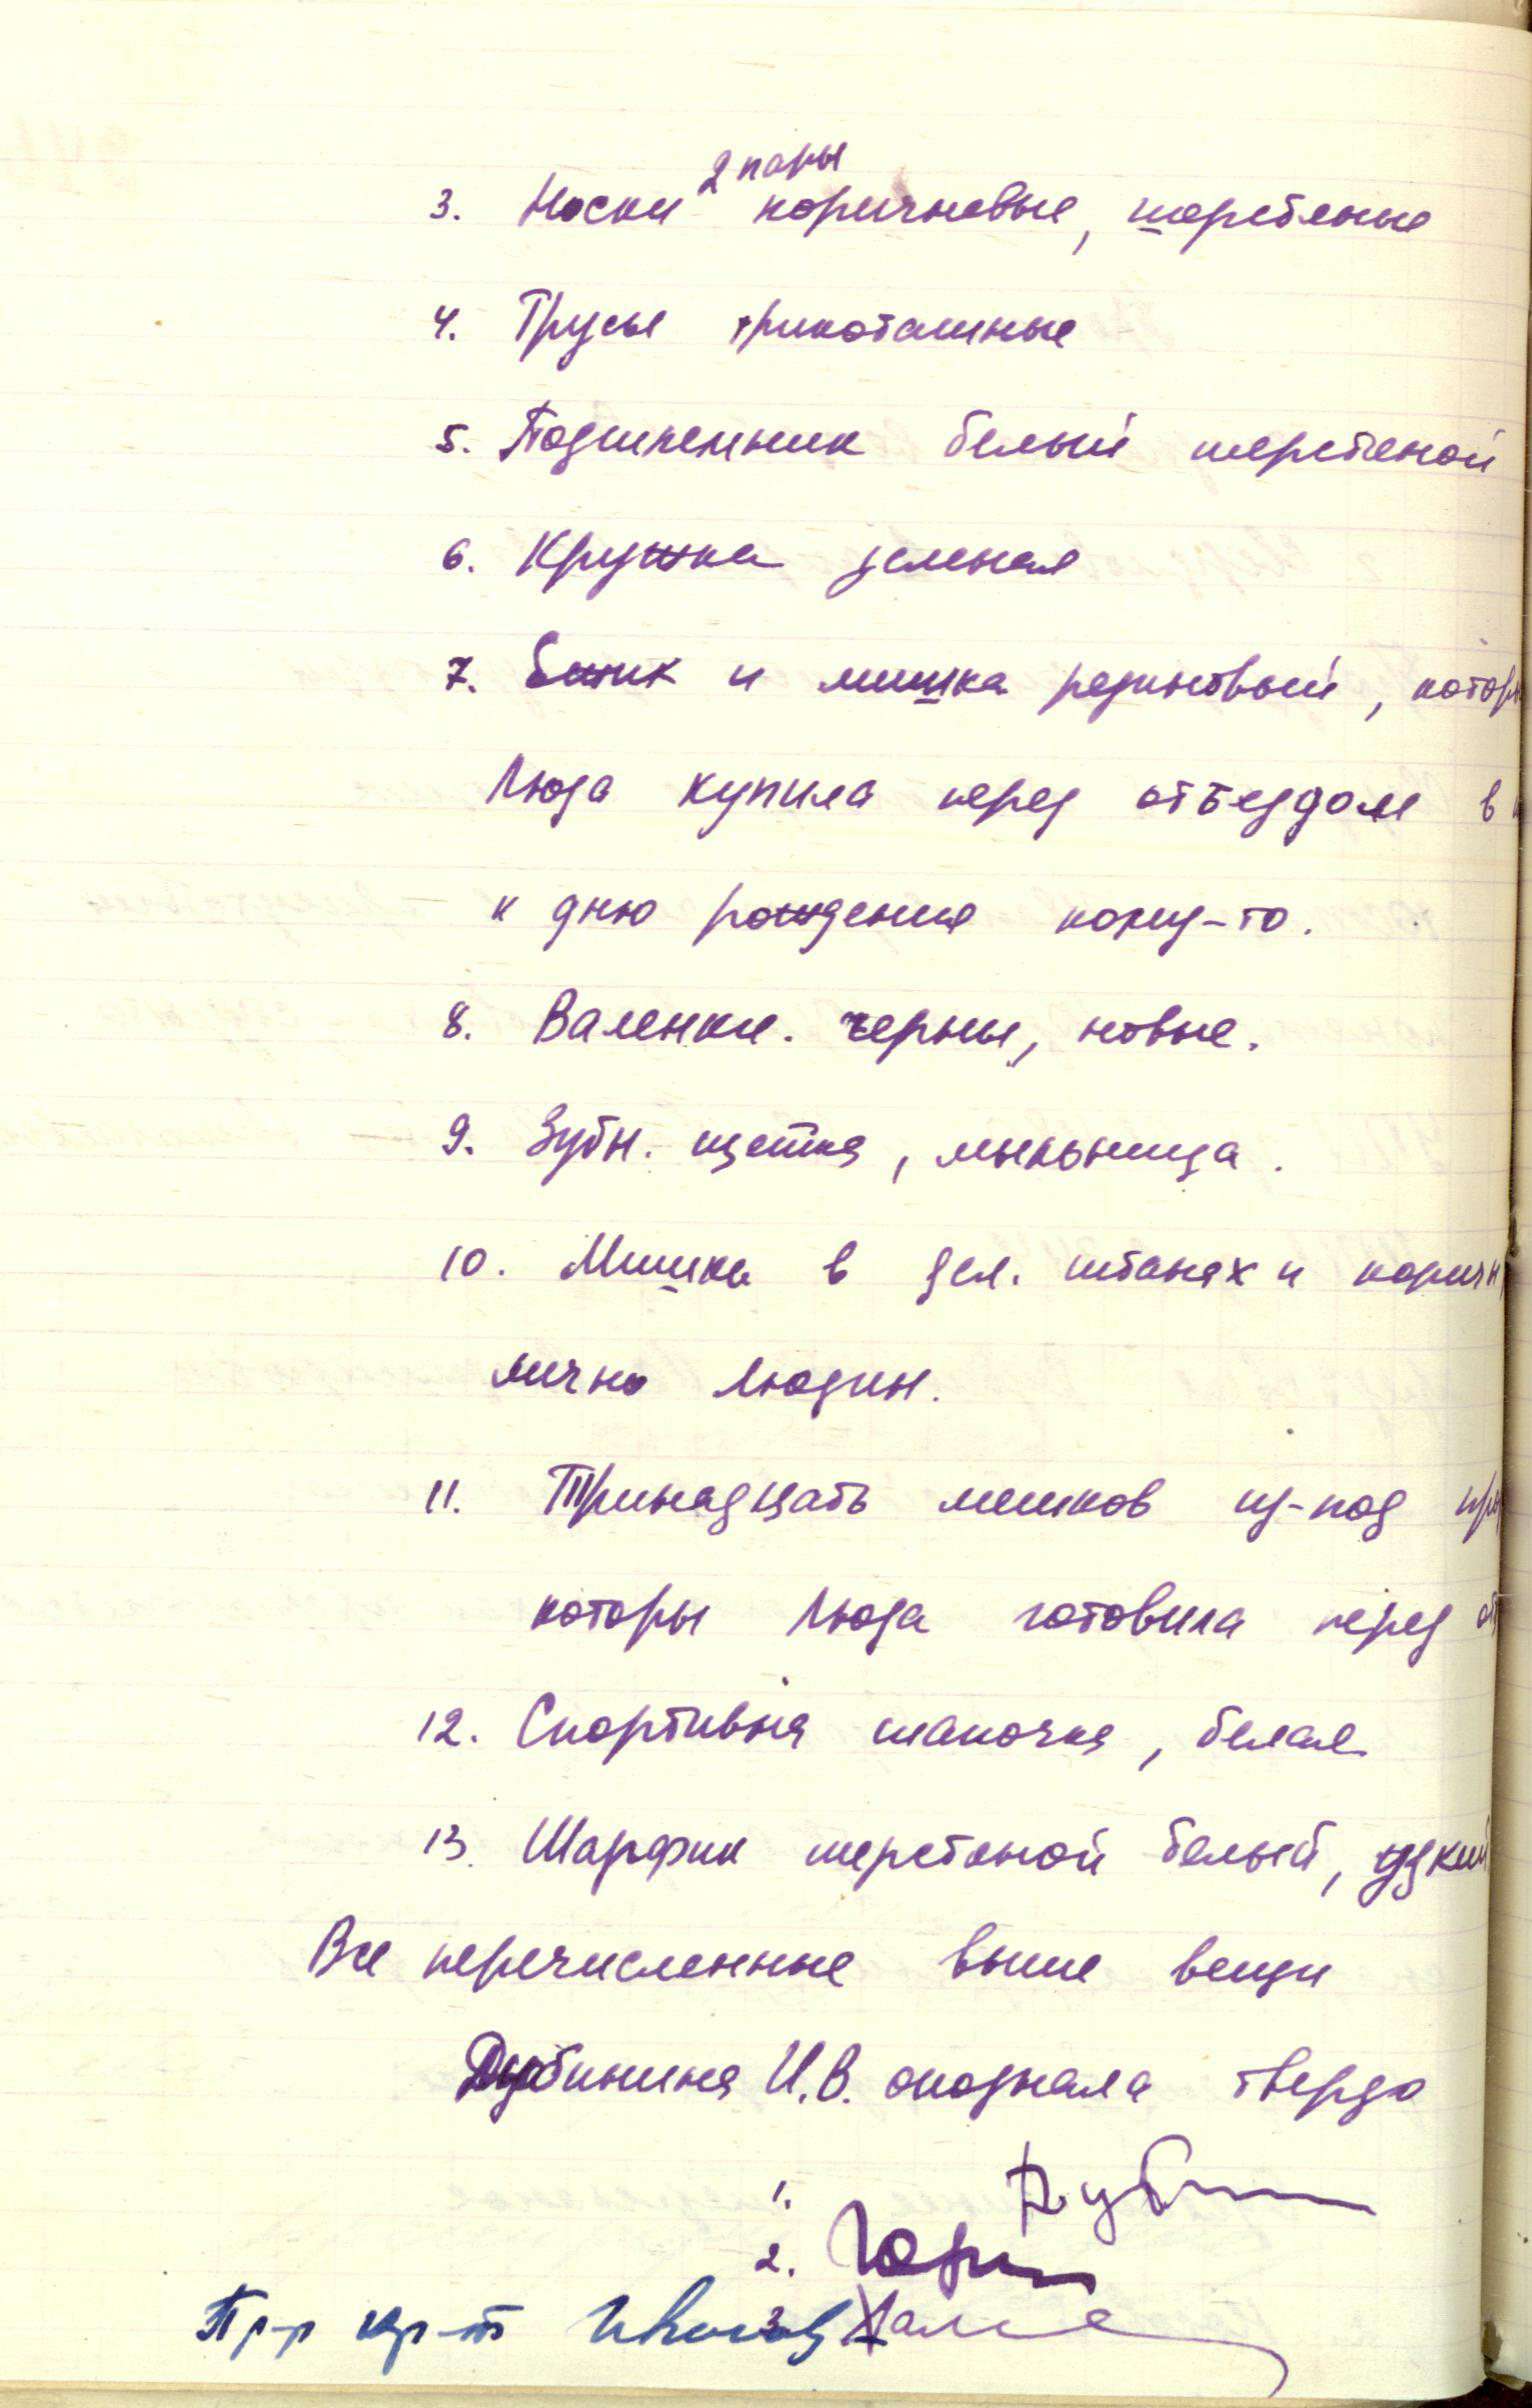 2 пары
3. Носки коричневые, шерстяные
4. Трусы трикотажные
5. Подшлемник белый шерстеной
6. Кружка зеленая
7. Ежик и мишка резиновый, котор
Люда купила перед отъездом в
к дню рождения кому-то.
8. Валенки. черные, новые.
9. Зубн. щетка, мыльница.
10. Мишка в зел. штанах и коричн
лично Людин.
11. Тринадцать мешков из-под
которы Люда готовила перед
12. Спортивная шапочка, белая
13. Шарфик шерстяной белый, узкий
Все перечисленные выше вещи
Дубинина И.В. опознала твердо
1. Дуб
2. Юри
Пр-р кр-т Иванов 3.